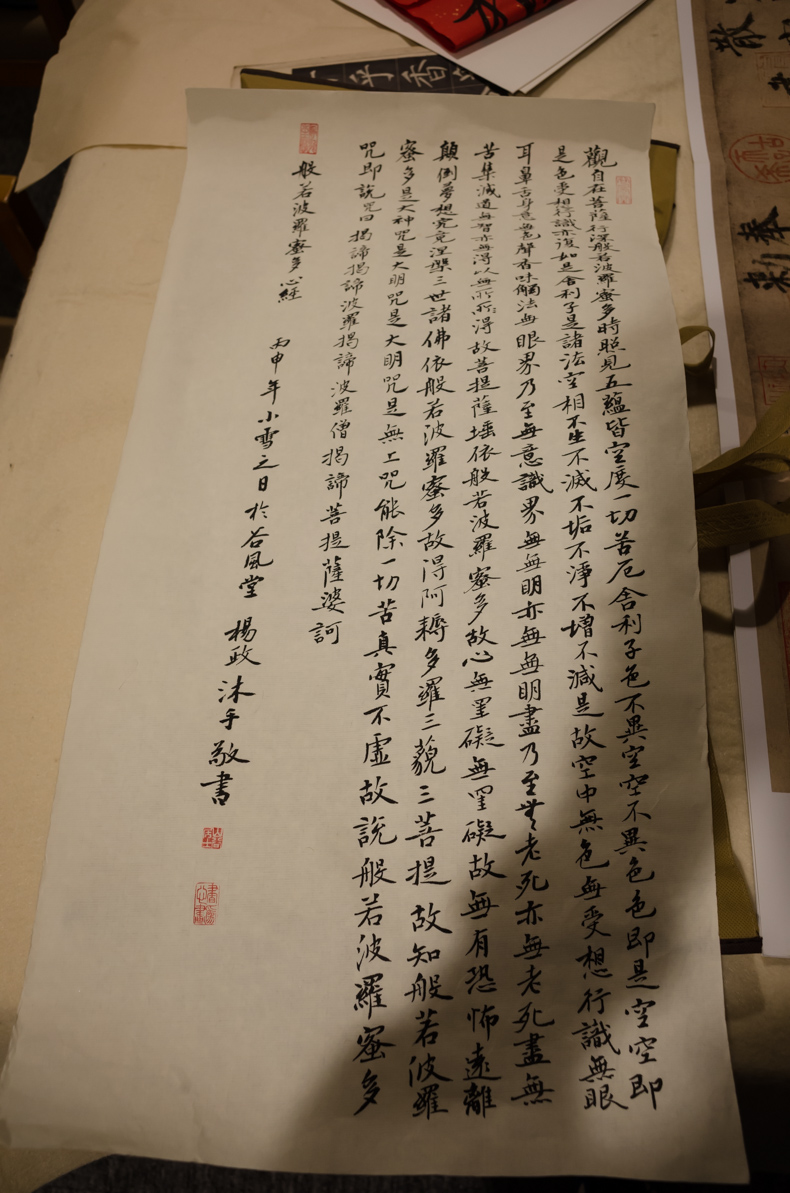 觀自在菩薩行深般若波羅蜜多時照見五蘊皆空度一切苦厄舍利子色不異空空不異色色即是空空即
是色受想行識亦復如是舍利子是諸法空相不生不滅不垢不淨不增不減是故空中無色無受想行識無眼
耳鼻舌身意無色聲香味觸法無眼界乃至無意識界無無明亦無無明盡乃至無老死亦無老死盡無
苦集滅道無智亦無得以無所所得故菩提薩埵依般若波羅蜜多故心無罣礙無罣礙故無有恐怖遠離
顛倒夢想究竟涅槃三世諸佛依般若波羅蜜多故得阿耨多羅三藐三菩提故知般若波羅
蜜多是大神咒是大明咒是大明咒是無上咒能除一切苦真實不虛故說般若波羅蜜多
咒即說咒曰揭諦揭諦波羅揭諦波羅僧揭諦菩提薩婆訶
般若波羅蜜多心經
丙申年小雪之日於谷風堂 楊政沐手敬書
乎香
散
奉